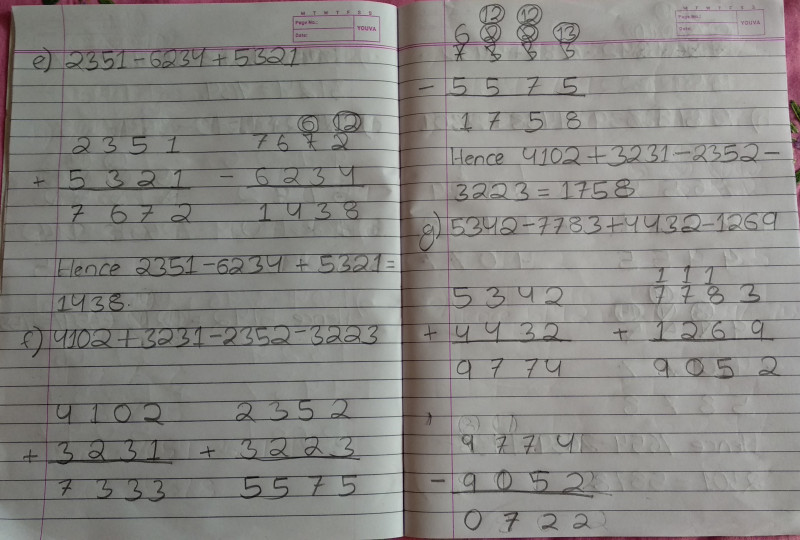 M T W T F S S
Page No.:
Date:
YOUVA
e) 2351-6234+5321
6 12
2351 7672
+ 5321 - 6234
7672 1438
Hence 2351-6234+5321=
1438.
f) 4102+3231-2352-3223
4102 2352
+ 3231 + 3223
7333 5575
M T W T F S S
Page No.:
Date:
YOUVA
12 12
6 2 2 13
7 3 3 3
- 5575
1758
Hence 4102+3231-2352-
3223=1758
g) 5342-7783+4432-1269
1 1 1
5342 7783
+ 4432 + 1269
9774 9052
9774
- 9052
0722